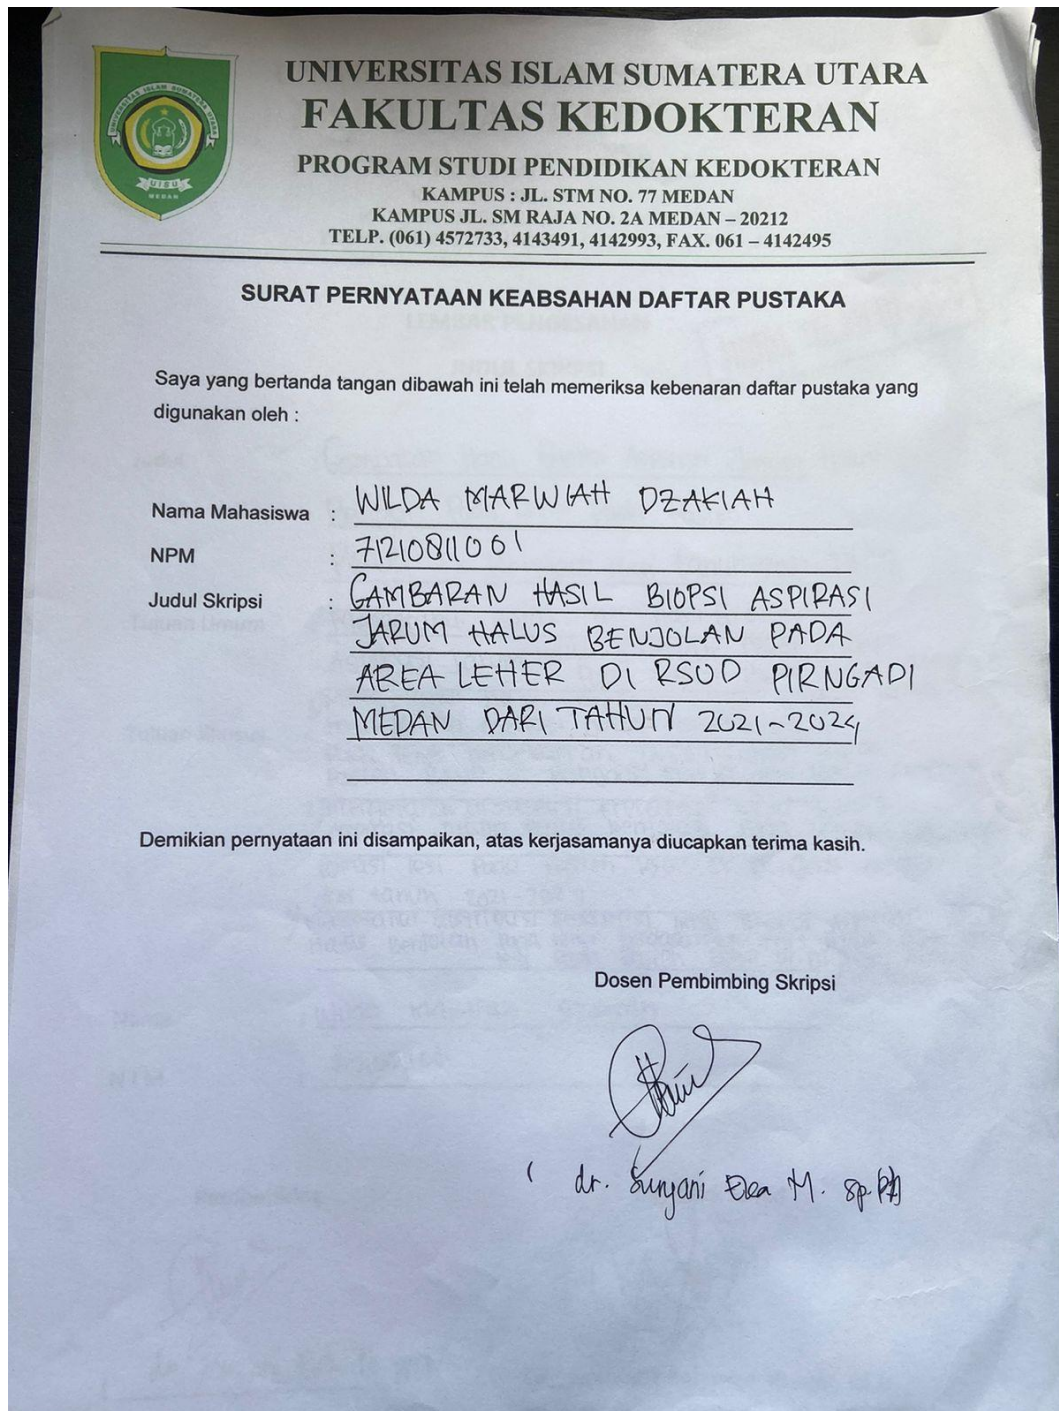 UNIVERSITAS ISLAM SUMATERA UTARA
UISU
MEDAN
UNIVERSITAS ISLAM SUMATERA UTARA
FAKULTAS KEDOKTERAN
PROGRAM STUDI PENDIDIKAN KEDOKTERAN
KAMPUS : JL. STM NO. 77 MEDAN
KAMPUS JL. SM RAJA NO. 2A MEDAN – 20212
TELP. (061) 4572733, 4143491, 4142993, FAX. 061 – 4142495
SURAT PERNYATAAN KEABSAHAN DAFTAR PUSTAKA
Saya yang bertanda tangan dibawah ini telah memeriksa kebenaran daftar pustaka yang
digunakan oleh :
Nama Mahasiswa : WILDA MARWIAH DZAKIAH
NPM : 71210811001
Judul Skripsi : GAMBARAN HASIL BIOPSI ASPIRASI
JARUM HALUS BENJOLAN PADA
AREA LEHER DI RSUD PIRNGADI
MEDAN DARI TAHUN 2021-2024
Demikian pernyataan ini disampaikan, atas kerjasamanya diucapkan terima kasih.
Dosen Pembimbing Skripsi
( dr. Suryani M. Sp.PA)